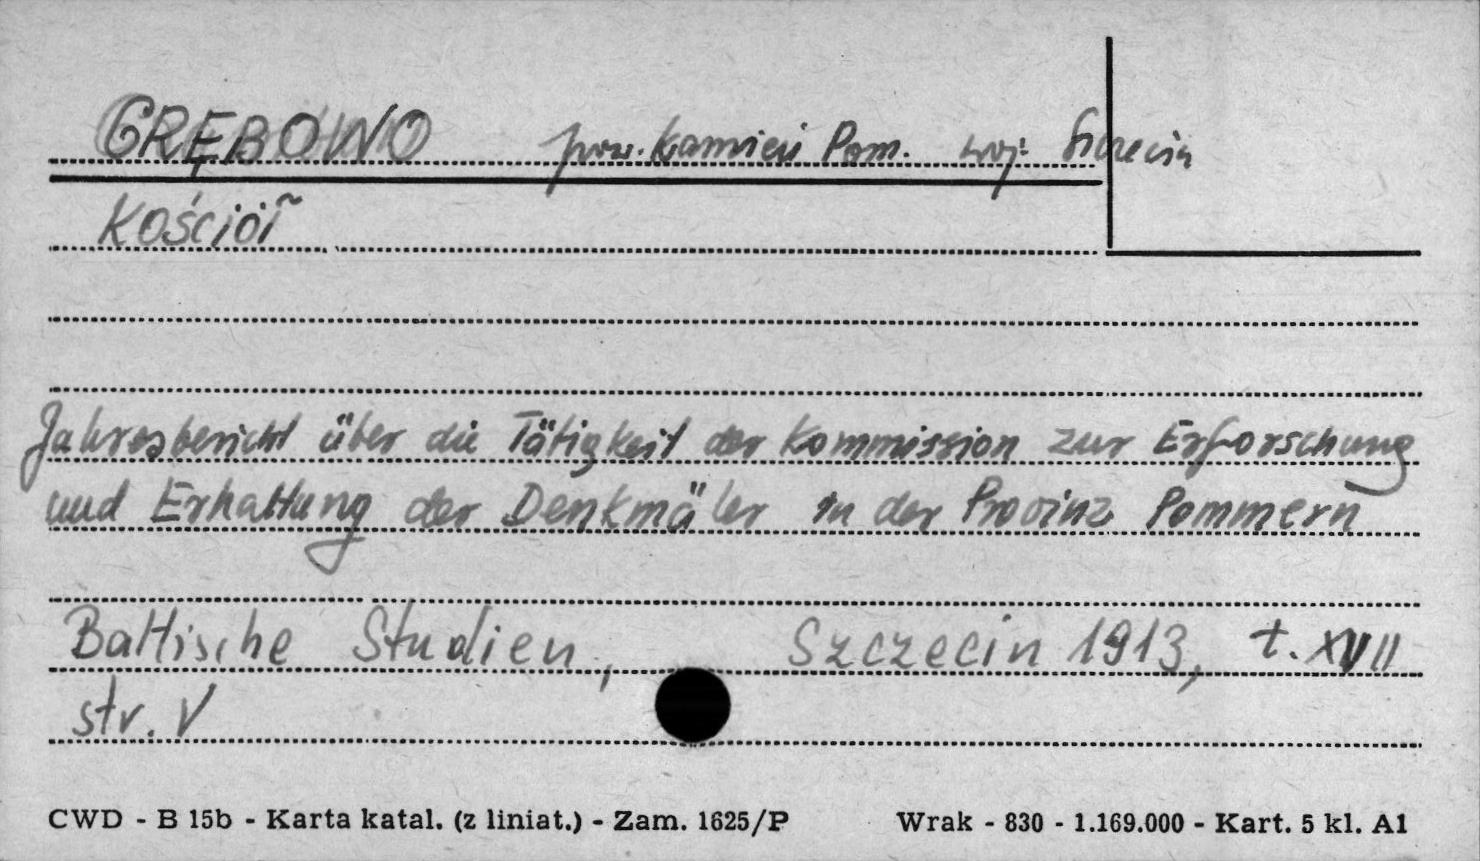 GRĘBOWO pow. Kamień Pom. woj. Szczecin
Kościół
Jahresbericht über die Tätigkeit der Kommission zur Erforschung
und Erhaltung der Denkmäler in der Provinz Pommern
Baltische Studien, Szczecin 1913, t. XVII
str. V
CWD - B 15b - Karta katal. (z liniat.) - Zam. 1625/P Wrak - 830 - 1.169.000 - Kart. 5 kl. A1